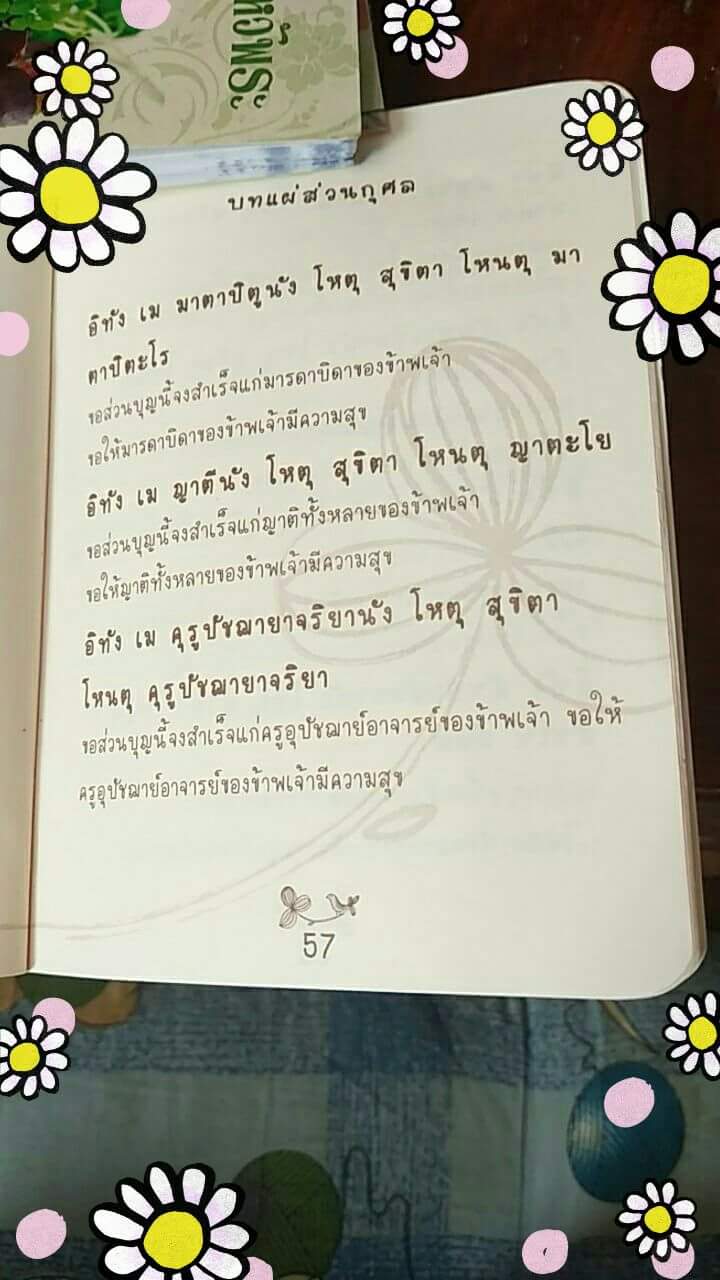 บทแผ่ส่วนกุศล
อิทัง เม มาตาปิตูนัง โหตุ สุขิตา โหนตุ มา
ตาปิตะโร
ขอส่วนบุญนี้จงสำเร็จแก่มารดาบิดาของข้าพเจ้า
ขอให้มารดาบิดาของข้าพเจ้ามีความสุข
อิทัง เม ญาตีนัง โหตุ สุขิตา โหนตุ ญาตะโย
ขอส่วนบุญนี้จงสำเร็จแก่ญาติทั้งหลายของข้าพเจ้า
ขอให้ญาติทั้งหลายของข้าพเจ้ามีความสุข
อิทัง เม คุรูปัชฌายาจริยานัง โหตุ สุขิตา
โหนตุ คุรูปัชฌายาจริยา
ขอส่วนบุญนี้จงสำเร็จแก่ครูอุปัชฌาย์อาจารย์ของข้าพเจ้า ขอให้
ครูอุปัชฌาย์อาจารย์ของข้าพเจ้ามีความสุข
57